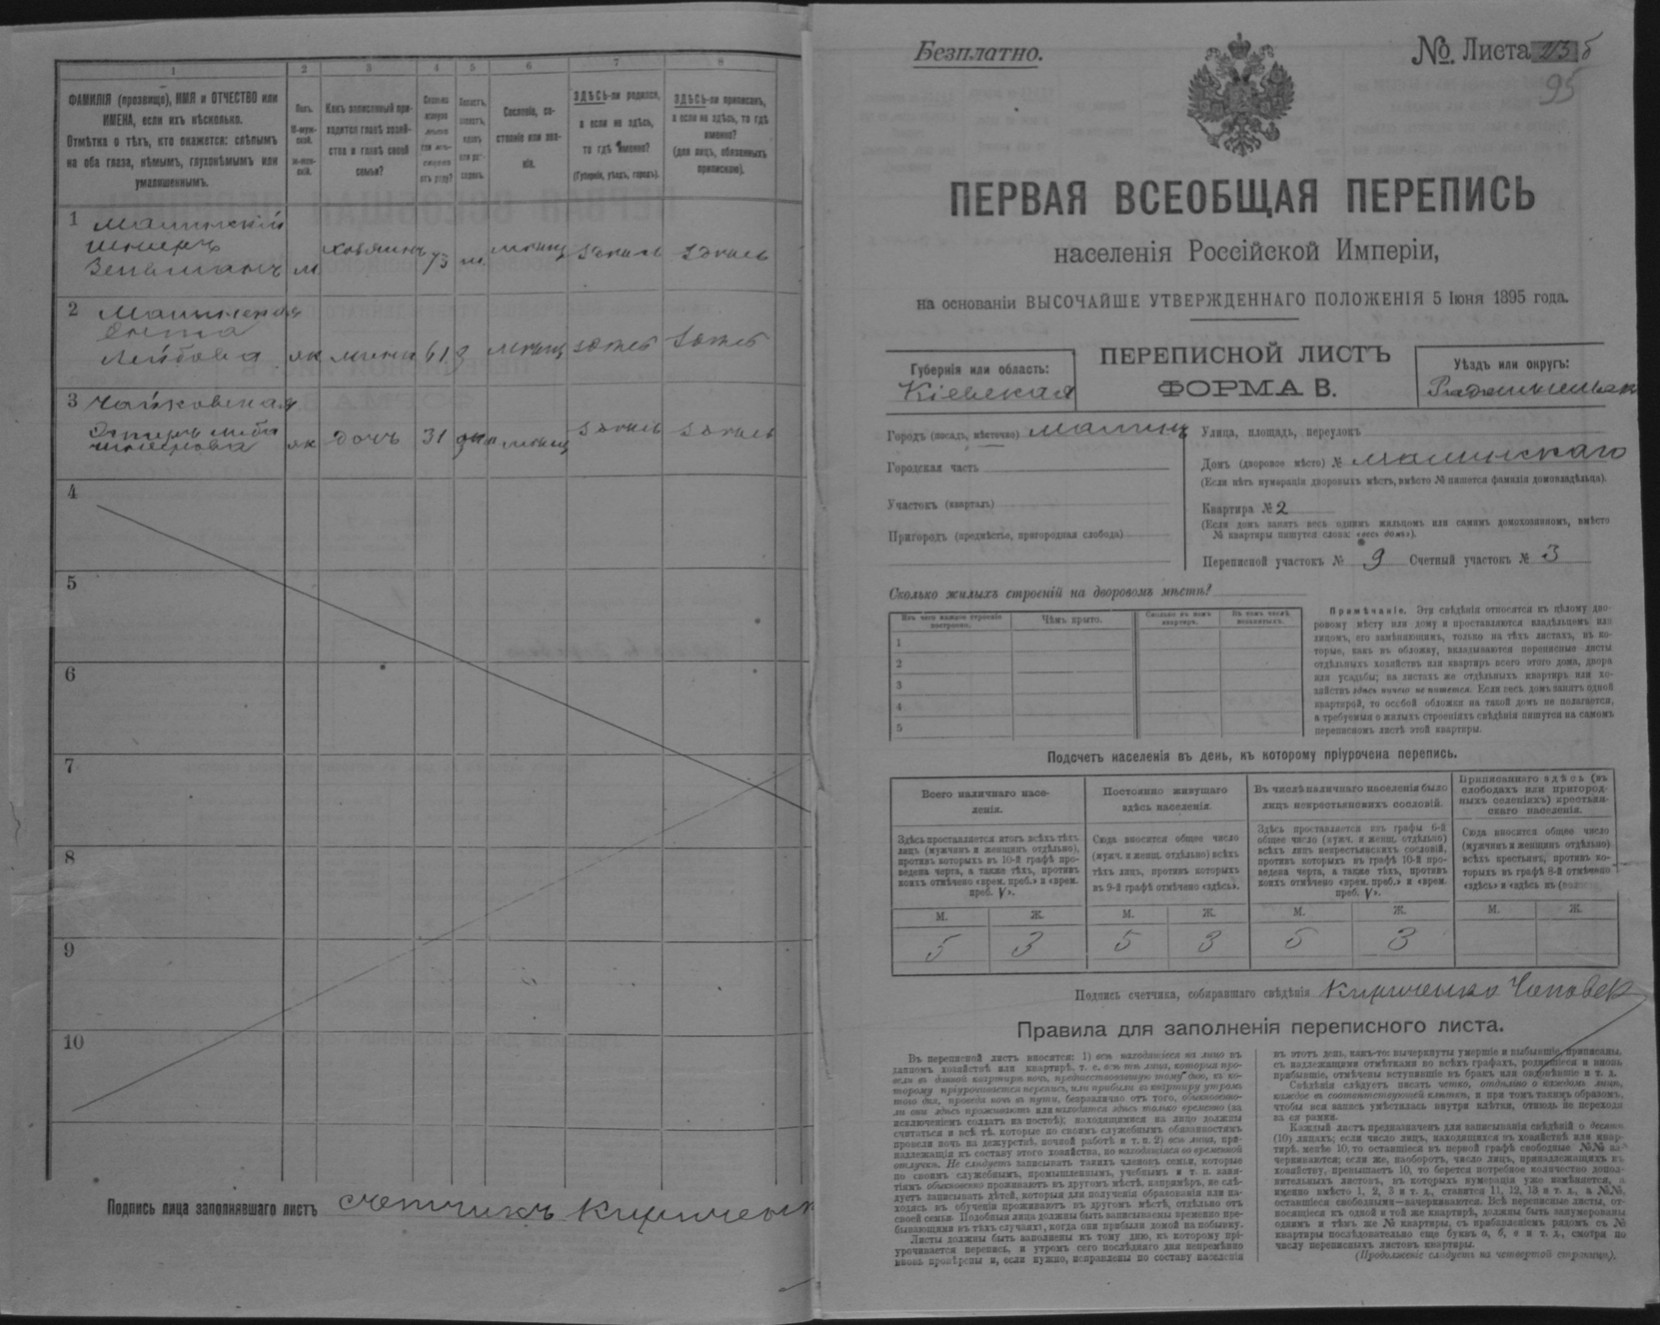 1 2 3 4 5 6 7 8
ФАМИЛІЯ (прозвище), ИМЯ и ОТЧЕСТВО или
ИМЕНА, если ихъ нѣсколько.
Отмѣтка о тѣхъ, кто окажется: слѣпымъ
на оба глаза, нѣмымъ, глухонѣмымъ или
умалишеннымъ.
Полъ.
М-муж-
ской.
ж-жен-
скій.
Какъ записанный при-
ходится главѣ хозяй-
ства и главѣ своей
семьи?
Сословіе, со-
стояніе или зва-
ніе.
ЗДѢСЬ-ли родился,
а если не здѣсь,
то гдѣ именно?
(Губернія, уѣздъ, городъ).
ЗДѢСЬ-ли приписанъ,
а если не здѣсь, то гдѣ
именно?
(для лицъ, обязанныхъ
припискою).
1 Малинскій
Зельманъ м хозяинъ 73 здѣсь здѣсь
2 Малинская
Лейбова жен жена 61 здѣсь здѣсь
3 Чайковская
дочь 31 здѣсь здѣсь
4
5
6
7
8
9
10
Подпись лица заполнявшаго листъ счетчикъ
Безплатно.
№ Листа 23 б
95
ПЕРВАЯ ВСЕОБЩАЯ ПЕРЕПИСЬ
населенія Россійской Имперіи,
на основаніи ВЫСОЧАЙШЕ УТВЕРЖДЕННАГО ПОЛОЖЕНІЯ 5 Іюня 1895 года.
Губернія или область:
Кіевская
ПЕРЕПИСНОЙ ЛИСТЪ
ФОРМА В.
Уѣздъ или округъ:
Городъ (посадъ, мѣстечко) Малинъ
Городская часть
Участокъ (кварталъ)
Пригородъ (предмѣстье, пригородная слобода)
Улица, площадь, переулокъ
Домъ (дворовое мѣсто) № Малинскаго
(Если нѣтъ нумераціи дворовыхъ мѣстъ, вмѣсто № пишется фамилія домовладѣльца).
Квартира № 2
(Если домъ занятъ весь однимъ жильцомъ или самимъ домохозяиномъ, вмѣсто
№ квартиры пишутся слова: «весь домъ»).
Переписной участокъ № 9 Счетный участокъ № 3
Сколько жилыхъ строеній на дворовомъ мѣстѣ?
Изъ чего каждое строеніе
построено.
Чѣмъ крыто.
Сколько въ немъ
квартиръ.
Въ томъ числѣ
незанятыхъ.
1
2
3
4
5
Примѣчаніе. Эти свѣдѣнія относятся къ цѣлому дво-
ровому мѣсту или дому и проставляются владѣльцемъ или
лицомъ, его замѣняющимъ, только на тѣхъ листахъ, въ ко-
торые, какъ въ обложку, вкладываются переписные листы
отдѣльныхъ хозяйствъ или квартиръ всего этого дома, двора
или усадьбы; на листахъ же отдѣльныхъ квартиръ или хо-
зяйствъ здѣсь ничего не пишется. Если весь домъ занятъ одной
квартирой, то особой обложки на такой домъ не полагается,
а требуемыя о жилыхъ строеніяхъ свѣдѣнія пишутся на самомъ
переписномъ листѣ этой квартиры.
Подсчетъ населенія въ день, къ которому пріурочена перепись.
Всего наличнаго насе-
ленія.
Здѣсь проставляется итогъ всѣхъ тѣхъ
лицъ (мужчинъ и женщинъ отдѣльно),
противъ которыхъ въ 10-й графѣ про-
ведена черта, а также тѣхъ, противъ
коихъ отмѣчено «врем. преб.» и «врем.
преб. V».
Постоянно живущаго
здѣсь населенія.
Сюда вносится общее число
(мужч. и женщ. отдѣльно) всѣхъ
тѣхъ лицъ, противъ которыхъ
въ 9-й графѣ отмѣчено «здѣсь».
Въ числѣ наличнаго населенія было
лицъ некрестьянскихъ сословій.
Здѣсь проставляется изъ графы 6-й
общее число (мужч. и женщ. отдѣльно)
всѣхъ лицъ некрестьянскихъ сословій,
противъ которыхъ въ графѣ 10-й про-
ведена черта, а также тѣхъ, противъ
коихъ отмѣчено «врем. преб.» и «врем.
преб. V».
Приписаннаго здѣсь (въ
слободахъ или пригород-
ныхъ селеніяхъ) крестьян-
скаго населенія.
Сюда вносится общее число
(мужчинъ и женщинъ отдѣльно)
всѣхъ крестьянъ, противъ ко-
торыхъ въ графѣ 8-й отмѣчено
«здѣсь» и «здѣсь въ
М. Ж. М. Ж. М. Ж. М. Ж.
5 3 5 3 5 3
Подпись счетчика, собиравшаго свѣдѣнія Кириченко
Правила для заполненія переписного листа.
Въ переписной листъ вносятся: 1) всѣ находящіеся на лицо въ
данномъ хозяйствѣ или квартирѣ, т. е. всѣ тѣ лица, которыя про-
вели въ данной квартирѣ ночь, предшествовавшую тому дню, къ ко-
торому пріурочивается перепись, или прибыли въ квартиру утромъ
того дня, проведя ночь въ пути, безразлично отъ того, обыкновенно-
ли они здѣсь проживаютъ или находятся здѣсь только временно (за
исключеніемъ солдатъ на постоѣ); находящимися на лицо должны
считаться и всѣ тѣ, которые по своимъ служебнымъ обязанностямъ
провели ночь на дежурствѣ, ночной работѣ и т. п. 2) всѣ лица, при-
надлежащія къ составу этого хозяйства, но находящіяся во временной
отлучкѣ. Не слѣдуетъ записывать такихъ членовъ семьи, которые
по своимъ служебнымъ, промышленнымъ, учебнымъ и т. п. заня-
тіямъ обыкновенно проживаютъ въ другомъ мѣстѣ, напримѣръ, не слѣ-
дуетъ записывать дѣтей, которыя для полученія образованія или на-
ходясь въ обученіи проживаютъ въ другомъ мѣстѣ, отдѣльно отъ
своей семьи. Подобныя лица должны быть записываемы временно пре-
бывающими въ тѣхъ случаяхъ, когда они прибыли домой на побывку.
Листы должны быть заполнены къ тому дню, къ которому прі-
урочивается перепись, и утромъ сего послѣдняго дня непремѣнно
вновь провѣрены и, если нужно, исправлены по составу населенія
въ этотъ день, какъ-то: вычеркнуты умершіе и выбывшіе, приписаны,
съ надлежащими отмѣтками во всѣхъ графахъ, родившіеся и вновь
прибывшіе, отмѣчены вступившіе въ бракъ или овдовѣвшіе и т. д.
Свѣдѣнія слѣдуетъ писать четко, отдѣльно о каждомъ лицѣ,
каждое въ соотвѣтствующей клѣткѣ, и при томъ такимъ образомъ,
чтобы вся запись умѣстилась внутри клѣтки, отнюдь не переходя
за ея рамки.
Каждый листъ предназначенъ для записыванія свѣдѣній о десяти
(10) лицахъ; если число лицъ, находящихся въ хозяйствѣ или квар-
тирѣ, менѣе 10, то оставшіеся въ первой графѣ свободные №№ за-
черкиваются; если же, наоборотъ, число лицъ, принадлежащихъ къ
хозяйству, превышаетъ 10, то берется потребное количество допол-
нительныхъ листовъ, въ которыхъ нумерація уже измѣняется, а
именно вмѣсто 1, 2, 3 и т. д., ставится 11, 12, 13 и т. д., а №№,
оставшіеся свободными—зачеркиваются. Всѣ переписные листы, от-
носящіеся къ одной и той же квартирѣ, должны быть занумерованы
однимъ и тѣмъ же № квартиры, съ прибавленіемъ рядомъ съ №
квартиры послѣдовательно еще буквъ а, б, в и т. д., смотря по
числу переписныхъ листовъ квартиры.
(Продолженіе слѣдуетъ на четвертой страницѣ).